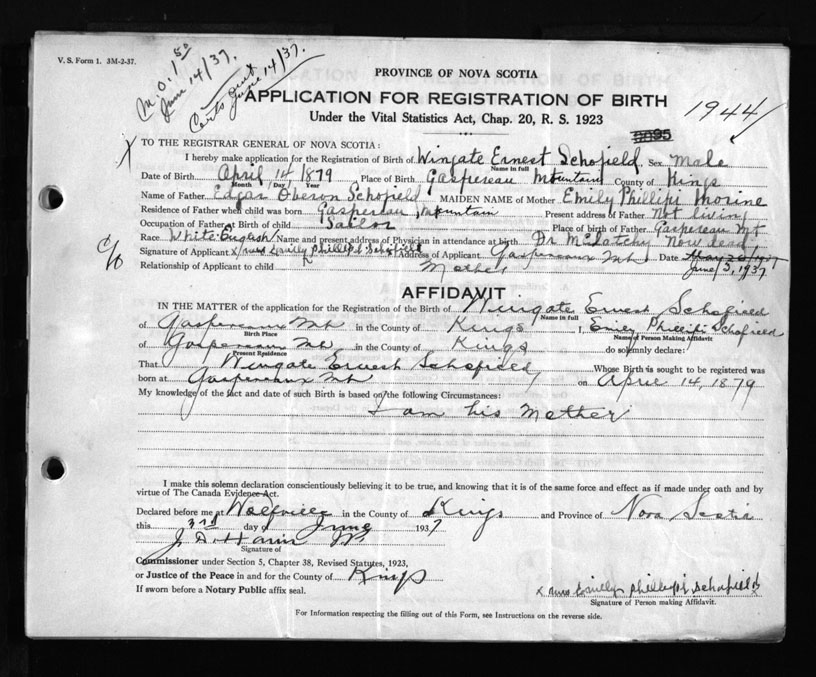 V. S. Form 1. 3M-2-37.
M.O. 1.50
June 14/37.
Certs sent
June 14/37.
PROVINCE OF NOVA SCOTIA
APPLICATION FOR REGISTRATION OF BIRTH
Under the Vital Statistics Act, Chap. 20, R. S. 1923
1944
X TO THE REGISTRAR GENERAL OF NOVA SCOTIA:
I hereby make application for the Registration of Birth of Wingate Ernest Schofield Sex Male
Name in full
Date of Birth April 14, 1879 Place of Birth Gaspereau Mountain County of Kings
Month Day Year
Name of Father Edgar Oberon Schofield MAIDEN NAME of Mother Emily Phillipi Morine
Residence of Father when child was born Gaspereau, Mountain Present address of Father Not living
Occupation of Father at Birth of child Sailor Place of birth of Father Gaspereau Mt
Race White English Name and present address of Physician in attendance at birth Dr McLatchy Now dead
c/o Signature of Applicant x mrs Emily Phillipi Schofield Address of Applicant Gaspereaux Mt Date June 3, 1937
Relationship of Applicant to child Mother
AFFIDAVIT
IN THE MATTER of the application for the Registration of the Birth of Wingate Ernest Schofield
Name in full
of Gaspereaux Mt in the County of Kings I, Emily Phillipi Schofield
Birth Place Name of Person Making Affidavit
of Gaspereaux Mt in the County of Kings do solemnly declare:
Present Residence
That Wingate Ernest Schofield, Whose Birth is sought to be registered was
born at Gaspereaux Mt on April 14, 1879
My knowledge of the fact and date of such Birth is based on the following Circumstances:
I am his Mother
I make this solemn declaration conscientiously believing it to be true, and knowing that it is of the same force and effect as if made under oath and by
virtue of The Canada Evidence Act.
Declared before me at Wolfville in the County of Kings and Province of Nova Scotia
this 3rd day of June 1937
J. D. Harris
Signature of
Commissioner under Section 5, Chapter 38, Revised Statutes, 1923,
or Justice of the Peace in and for the County of Kings
If sworn before a Notary Public affix seal.
x mrs Emily Phillipi Schofield
Signature of Person making Affidavit.
For Information respecting the filling out of this Form, see Instructions on the reverse side.